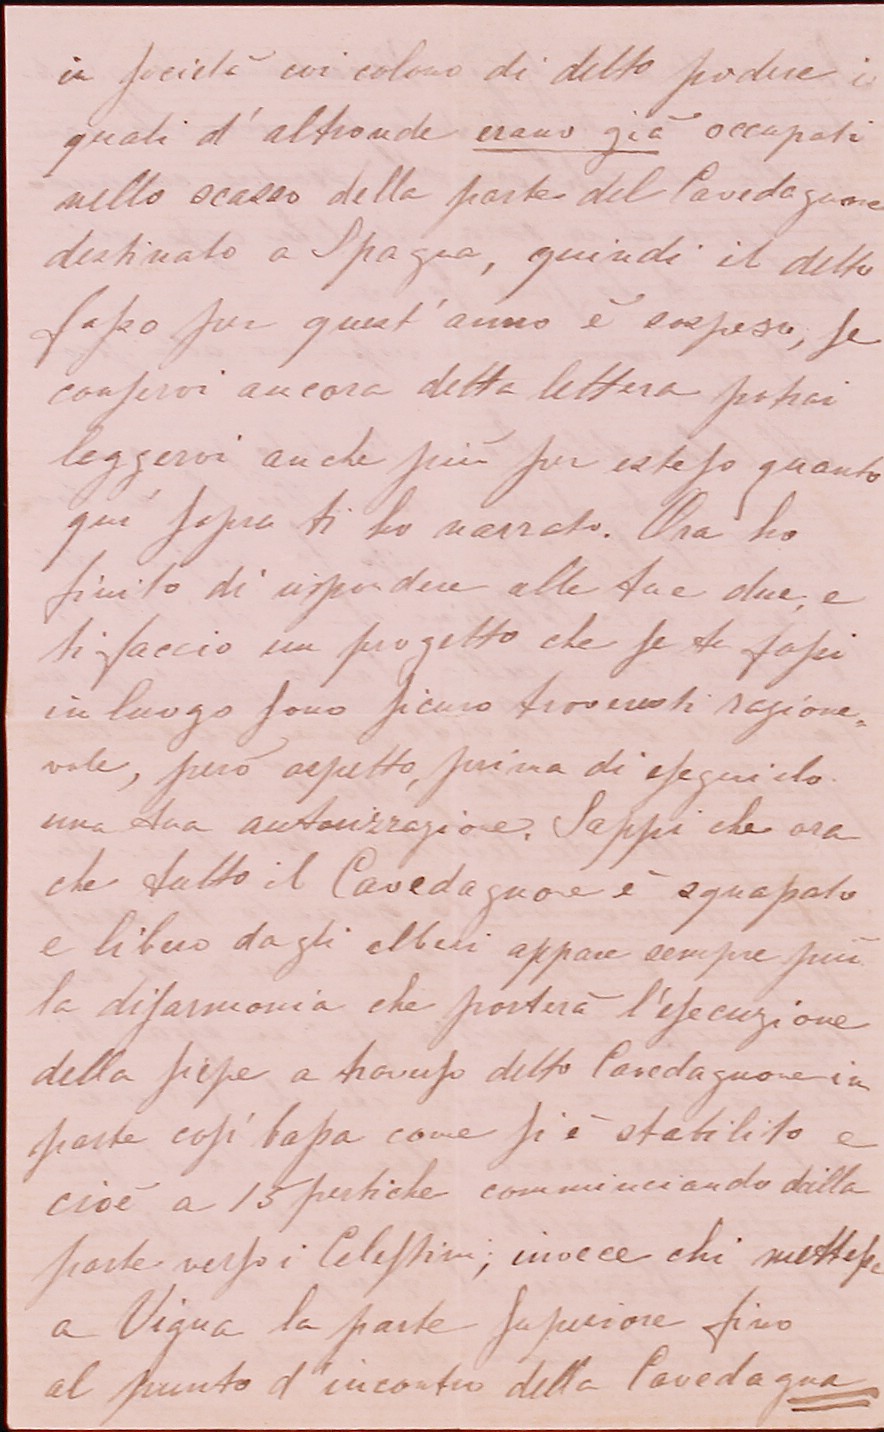 in società coi colono di detto podere i
quali d'altronde erano già occupati
nello scasso della parte del Cavedagnone
destinato a Spagna, quindi il detto
fosso per quest'anno è sospeso, se
conservi ancora detta lettera potrai
leggervi anche più per esteso quanto
qui sopra ti ho narrato. Ora ho
finito di rispondere alle tue due, e
ti faccio un progetto che se tu fossi
in luogo sono sicuro troveresti ragione,
vole, però aspetto, prima di eseguirlo
una tua autorizzazione. Sappi che ora
che tutto il Cavedagnone è squassato
e libero dagli alberi appare sempre più
la disarmonia che porterà l'esecuzione
della siepe a traverso detto Cavedagnone in
parte così bassa come si è stabilito e
cioè a 15 pertiche comminciando dalla
parte verso i Celestini; invece chi mettesse
a Vigna la parte superiore fino
al punto d'incontro della Cavedagna